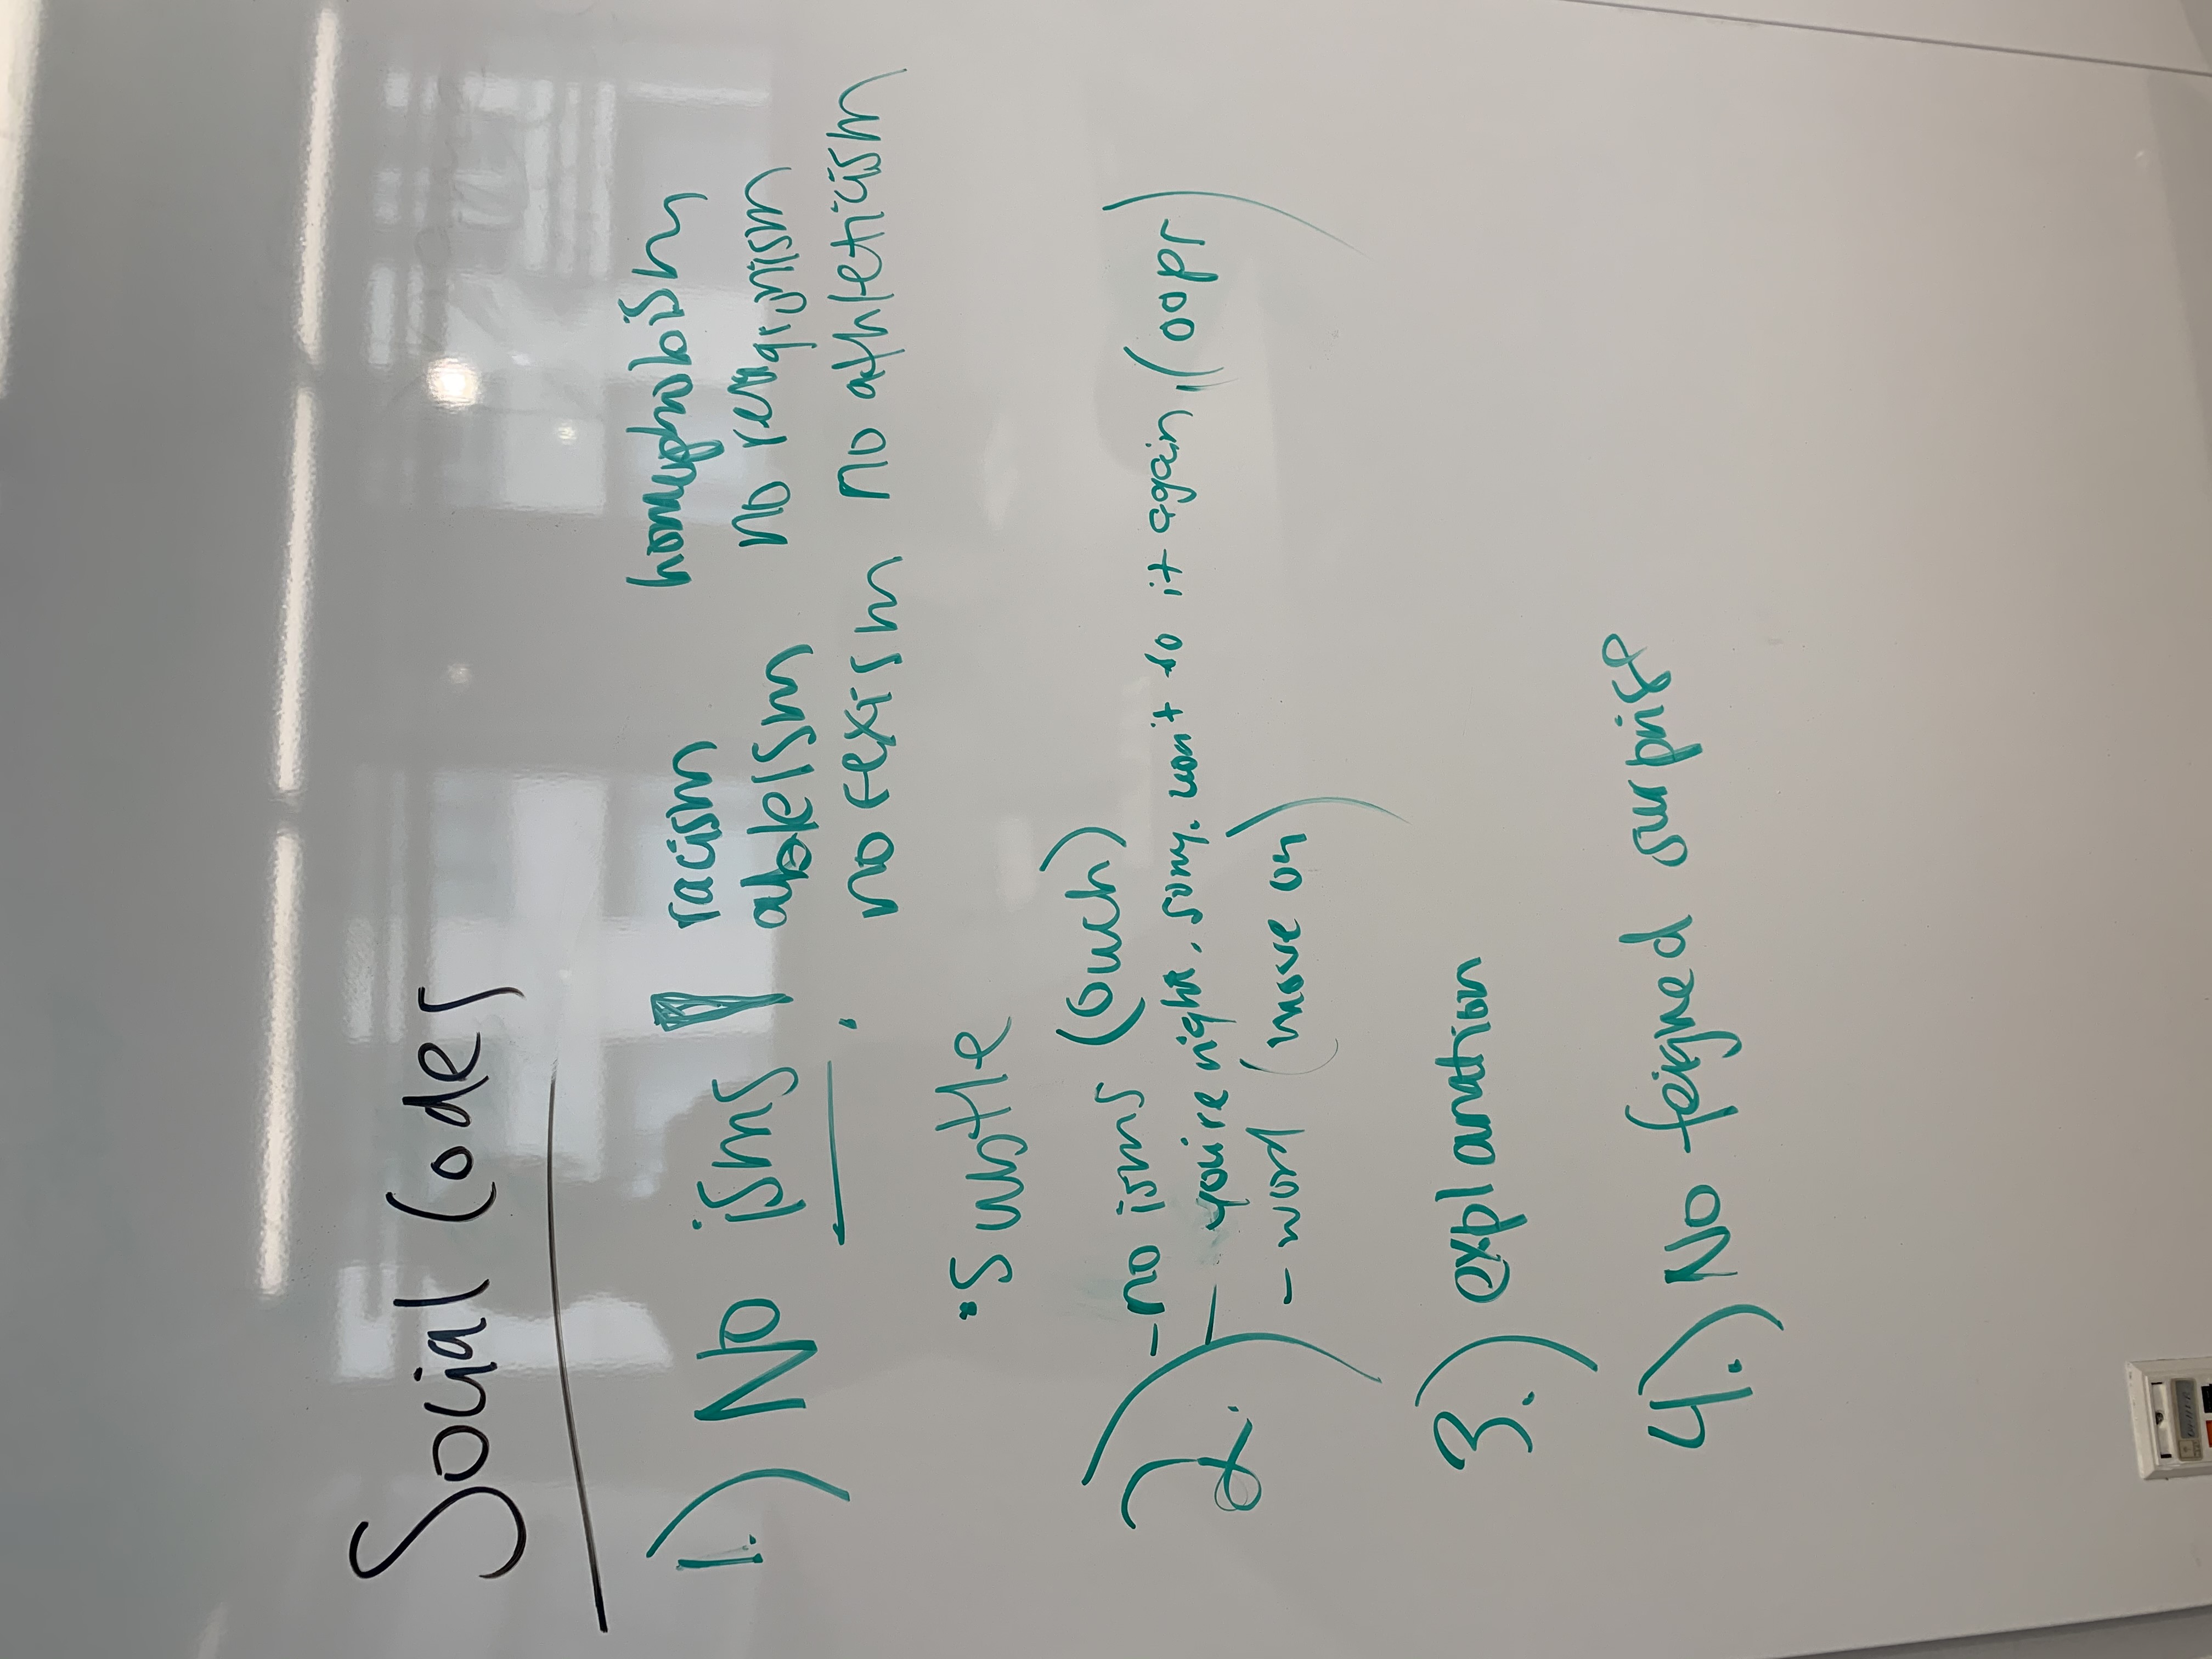 Social Codes
1.) No isms!
racism
homophobism
ableism
no religionism
no sexism
no athleticism
• Subtle
2.) - no isms (ouch)
- you're right. sorry. won't do it again, (oops)
- word (move on)
3.) explanation
4.) No feigned surprise